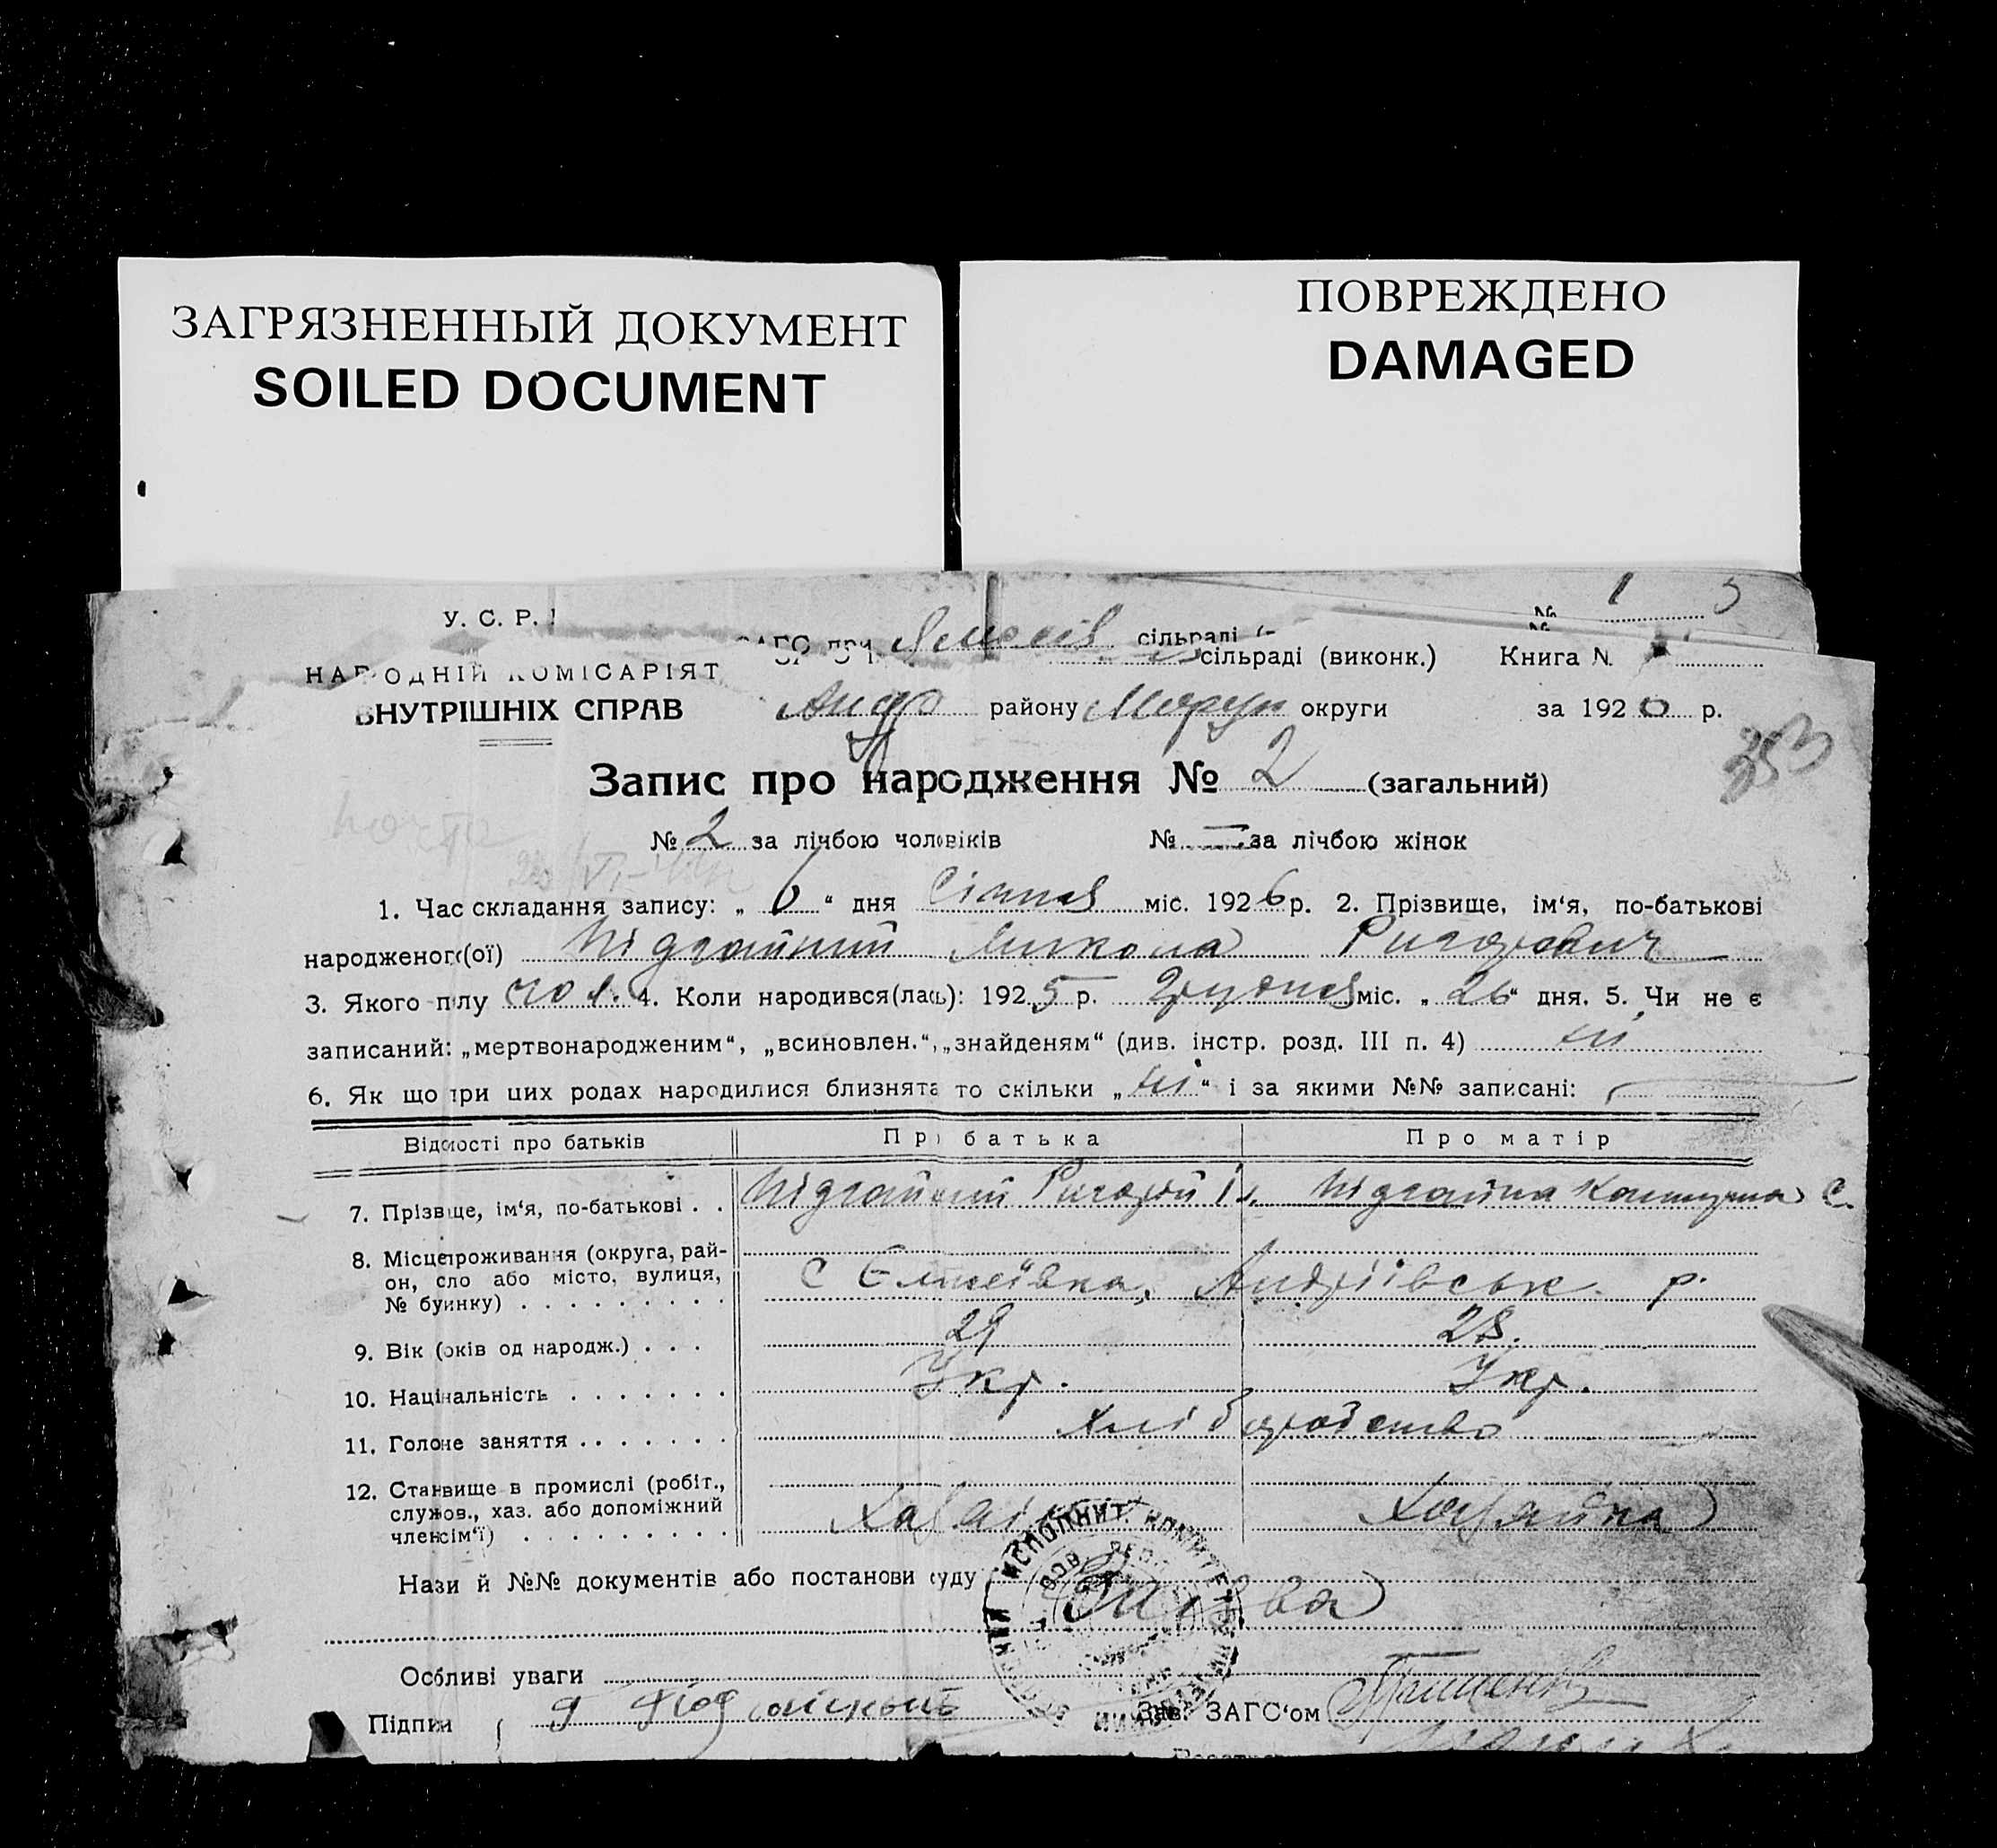 ЗАГРЯЗНЕННЫЙ ДОКУМЕНТ
SOILED DOCUMENT
ПОВРЕЖДЕНО
DAMAGED
У. С. Р. Р.
№ 1 3
сільраді
НАРОДНІЙ КОМІСАРІЯТ
сільраді (виконк.) Книга N.
ВНУТРІШНІХ СПРАВ
Андр району округи за 1926 р.
353
Запис про народження № 2 (загальний)
№ 2 за лічбою чоловіків № — за лічбою жінок
1. Час складання запису: „ 6 “ дня Січня міс. 1926 р. 2. Прізвище, ім‘я, по-батькові
народженого(ої) Підгайний Микола Григорович
3. Якого полу чол. 4. Коли народився(лась): 1925 р. Грудня міс. „ 26 “ дня. 5. Чи не є
записаний: „мертвонародженим“, „всиновлен.“, „знайденям“ (див. інстр. розд. III п. 4) ні
6. Як що при цих родах народилися близнята то скільки „ ні “ і за якими №№ записані: —
Відомості про батьків Про батька Про матір
7. Прізвище, ім‘я, по-батькові . . Підгайний Григорій Ів. Підгайна С.
8. Місцепроживання (округа, рай-
он, село або місто, вулиця,
№ будинку) . . . . . . . . . с Єлисеївка, Андріївськ. р.
9. Вік (років од народж.) . . . 29 28.
10. Національність . . . . . . . Укр. Укр.
11. Головне заняття . . . . . . . Хліборобство
12. Становище в промислі (робіт.,
служов., хаз. або допоміжний
член сім‘ї) . . . . . . . . . Хазяїн Хазяйка
Назви й №№ документів або постанови суду
ИСПОЛНИТ. КОМИТЕТ
Особливі уваги
Підписи
Зав. ЗАГС‘ом